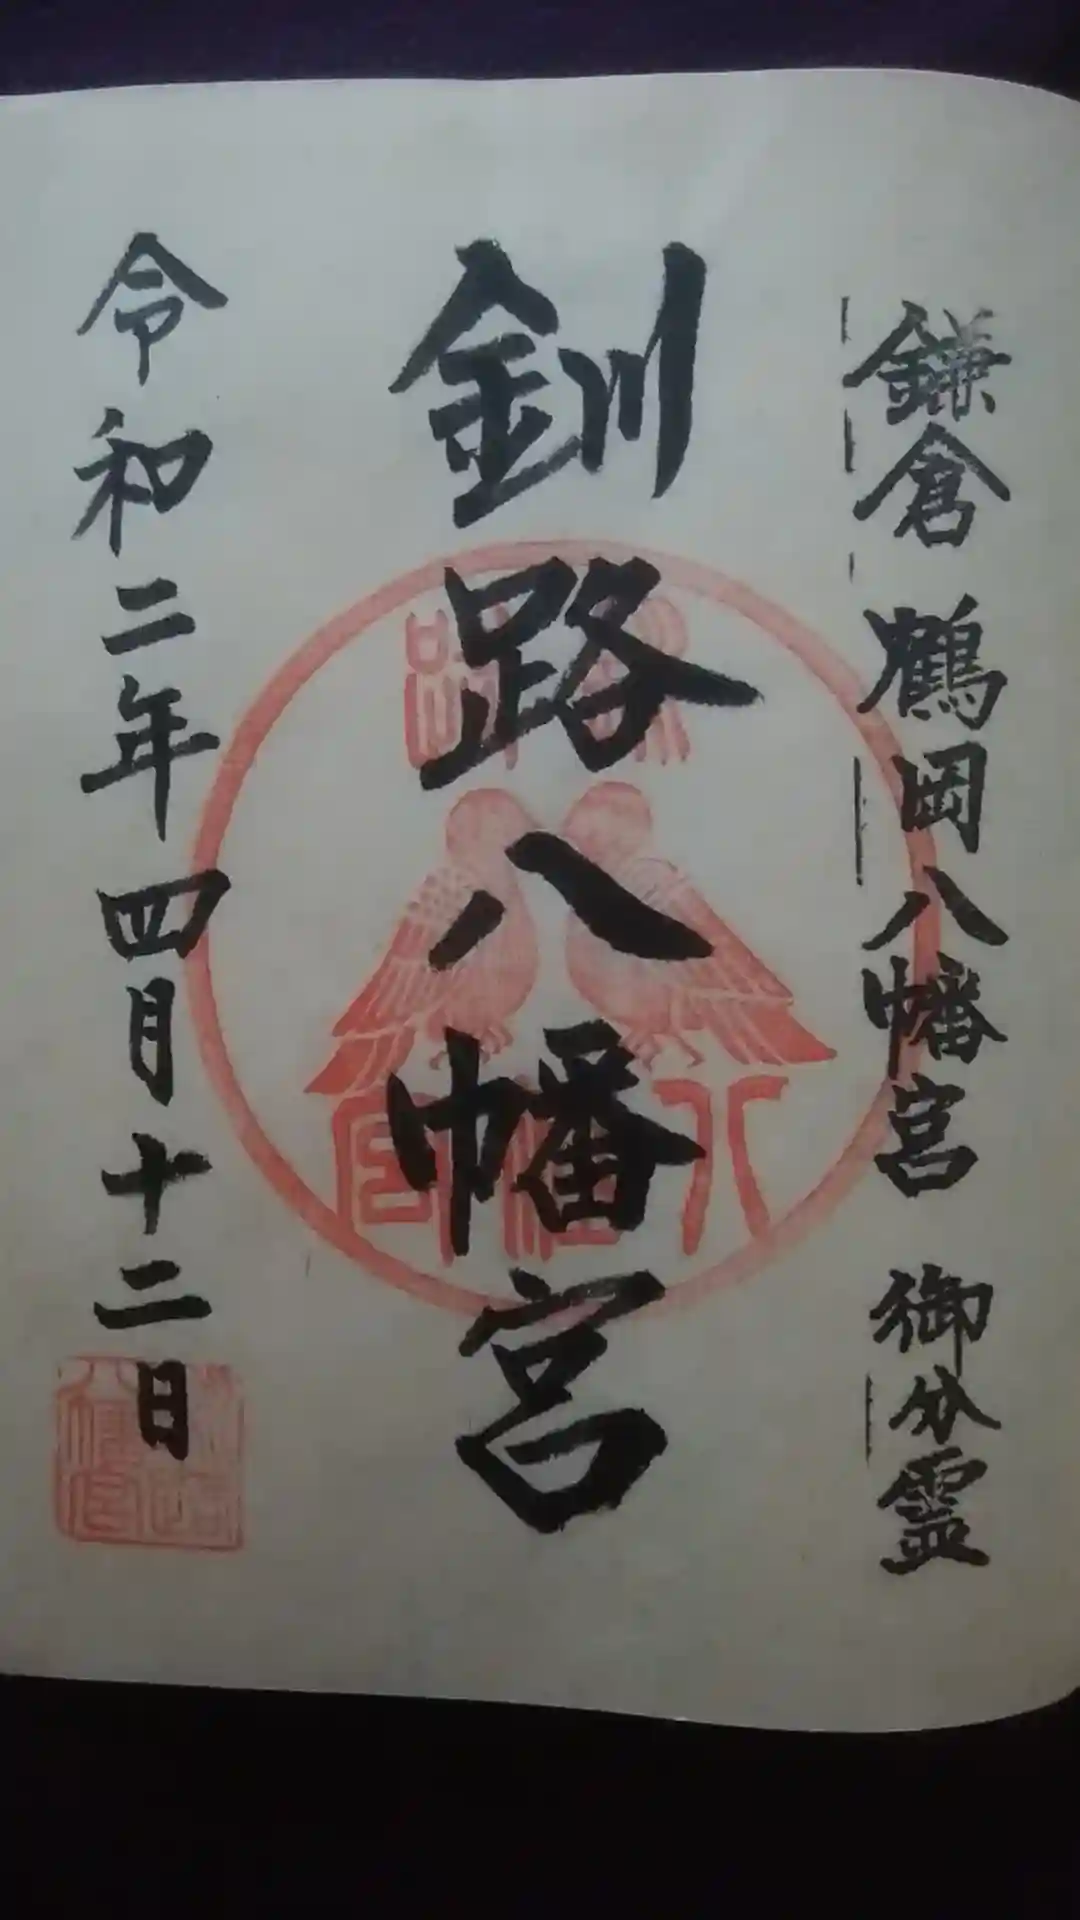 鎌倉 鶴岡八幡宮 御分霊
釧路八幡宮
令和二年四月十二日
釧路
八幡宮